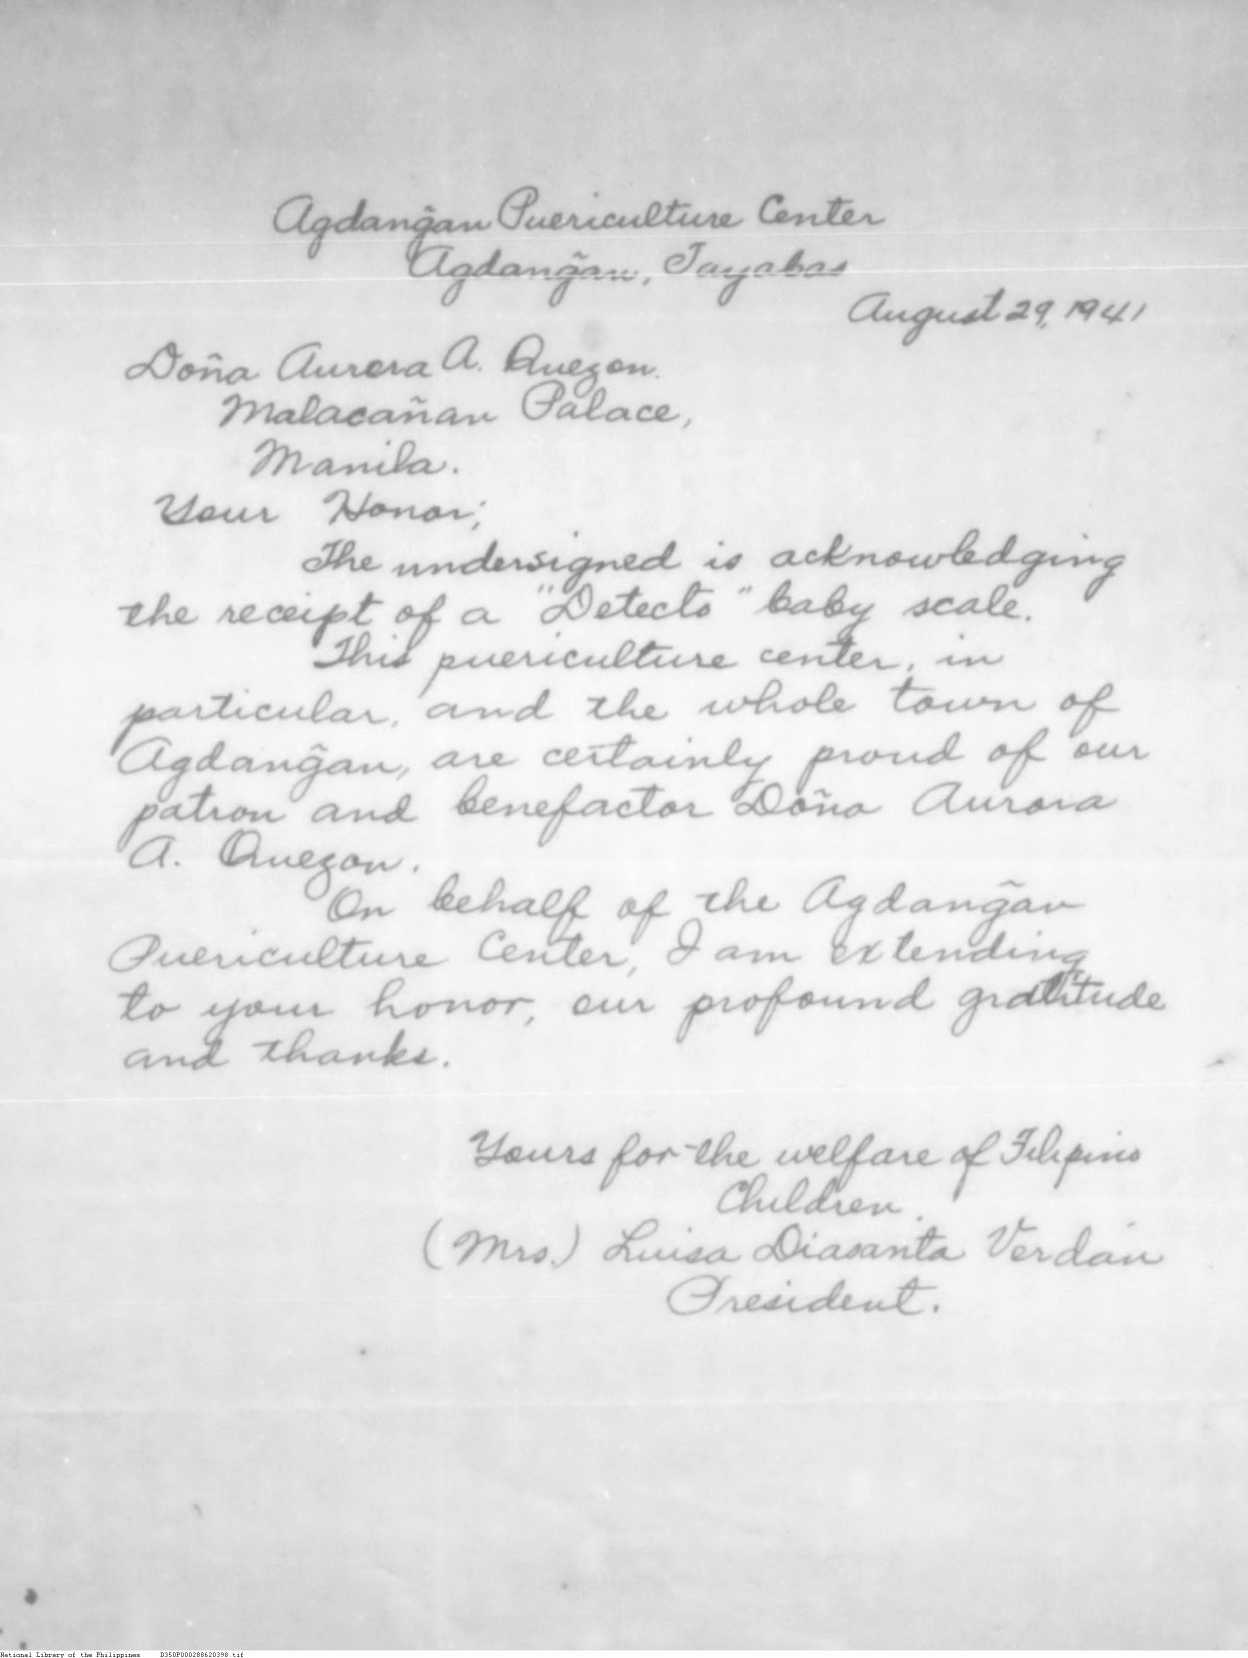 Agdang̃an Puericulture Center
Agdang̃an, Tayabas
August 29, 1941
Doña Aurora A. Quezon.
Malacañan Palace,
Manila.
Your Honor;
The undersigned is acknowledging
the receipt of a "Detecto" baby scale.
This puericulture center, in
particular, and the whole town of
Agdang̃an, are certainly proud of our
patron and benefactor Doña Aurora
A. Quezon.
On behalf of the Agdang̃an
Puericulture Center, I am extending
to your honor, our profound gratitude
and thanks.
Yours for the welfare of Filipino
Children.
(Mrs.) Luisa Diasanta Verdán
President.
National Library of the Philippines D350P000288620398.tif